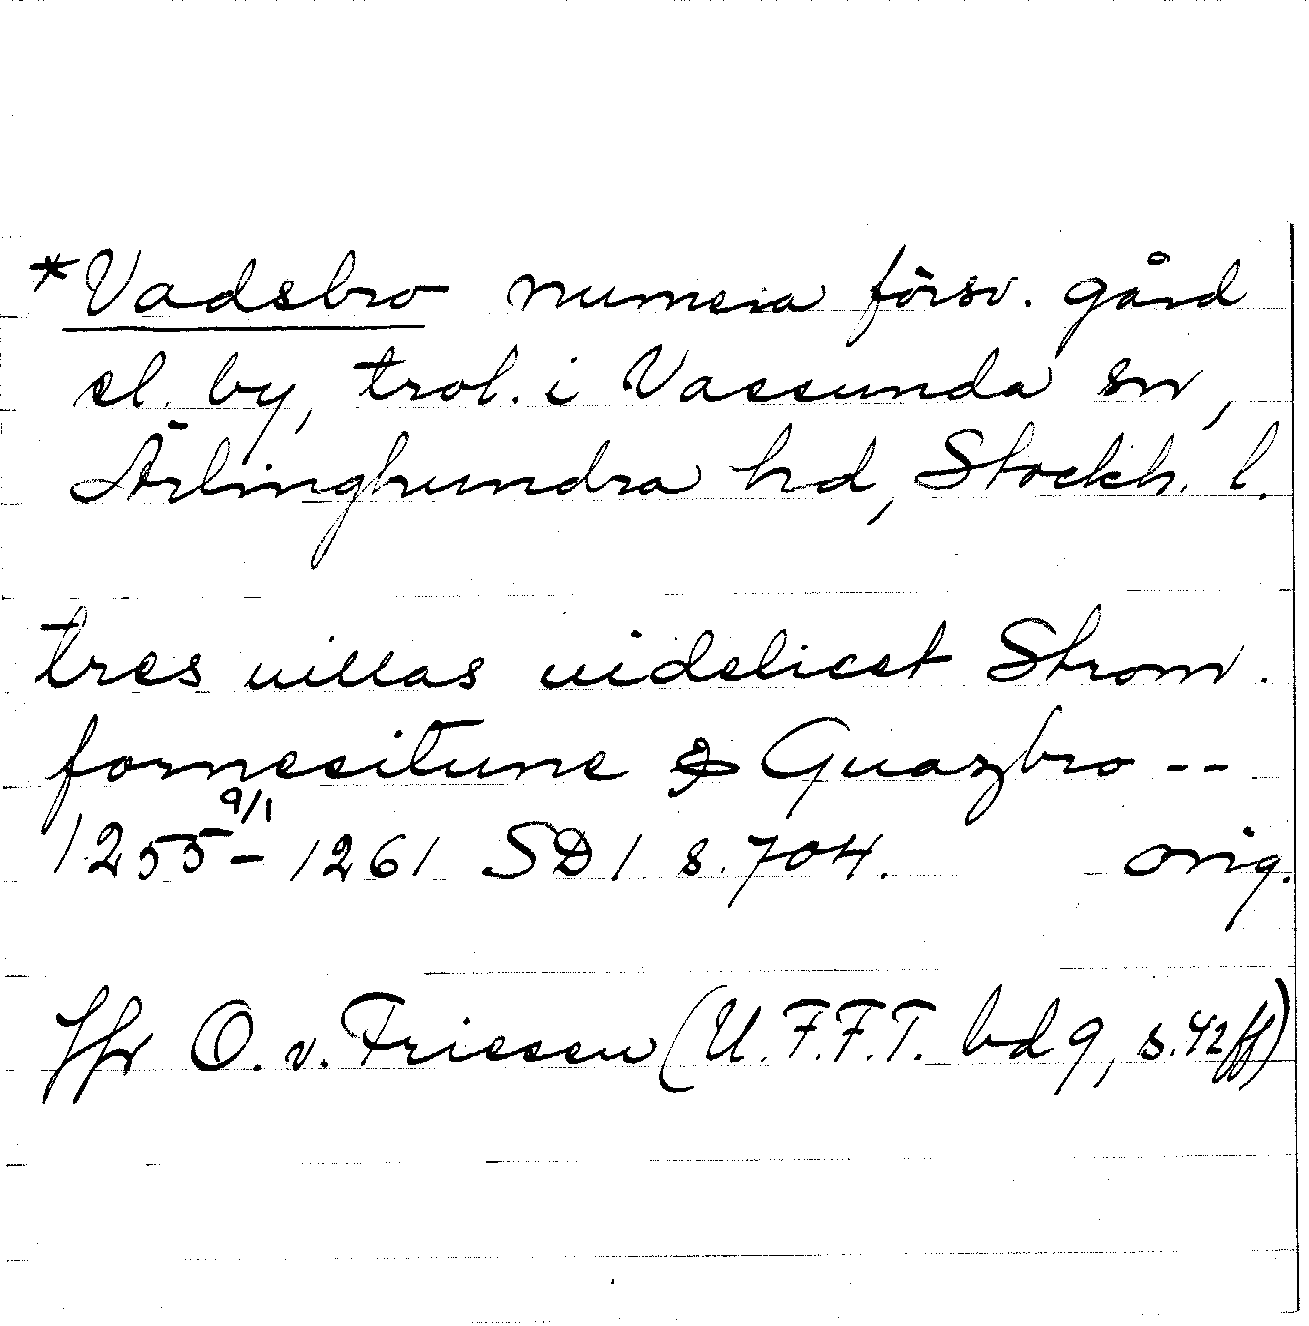 *Vadsbro numera försv. gård
el. by, trol. i Vassunda sn,
Ärlinghundra hd, Stockh. l.
tres uillas uidelicet Strom.
fornesitune & Guazbro --
1255 - 9/1 1261 SD 1 s. 704. orig.
Jfr O. v. Friesen (U.F.F.T. bd 9, s. 42 ff)